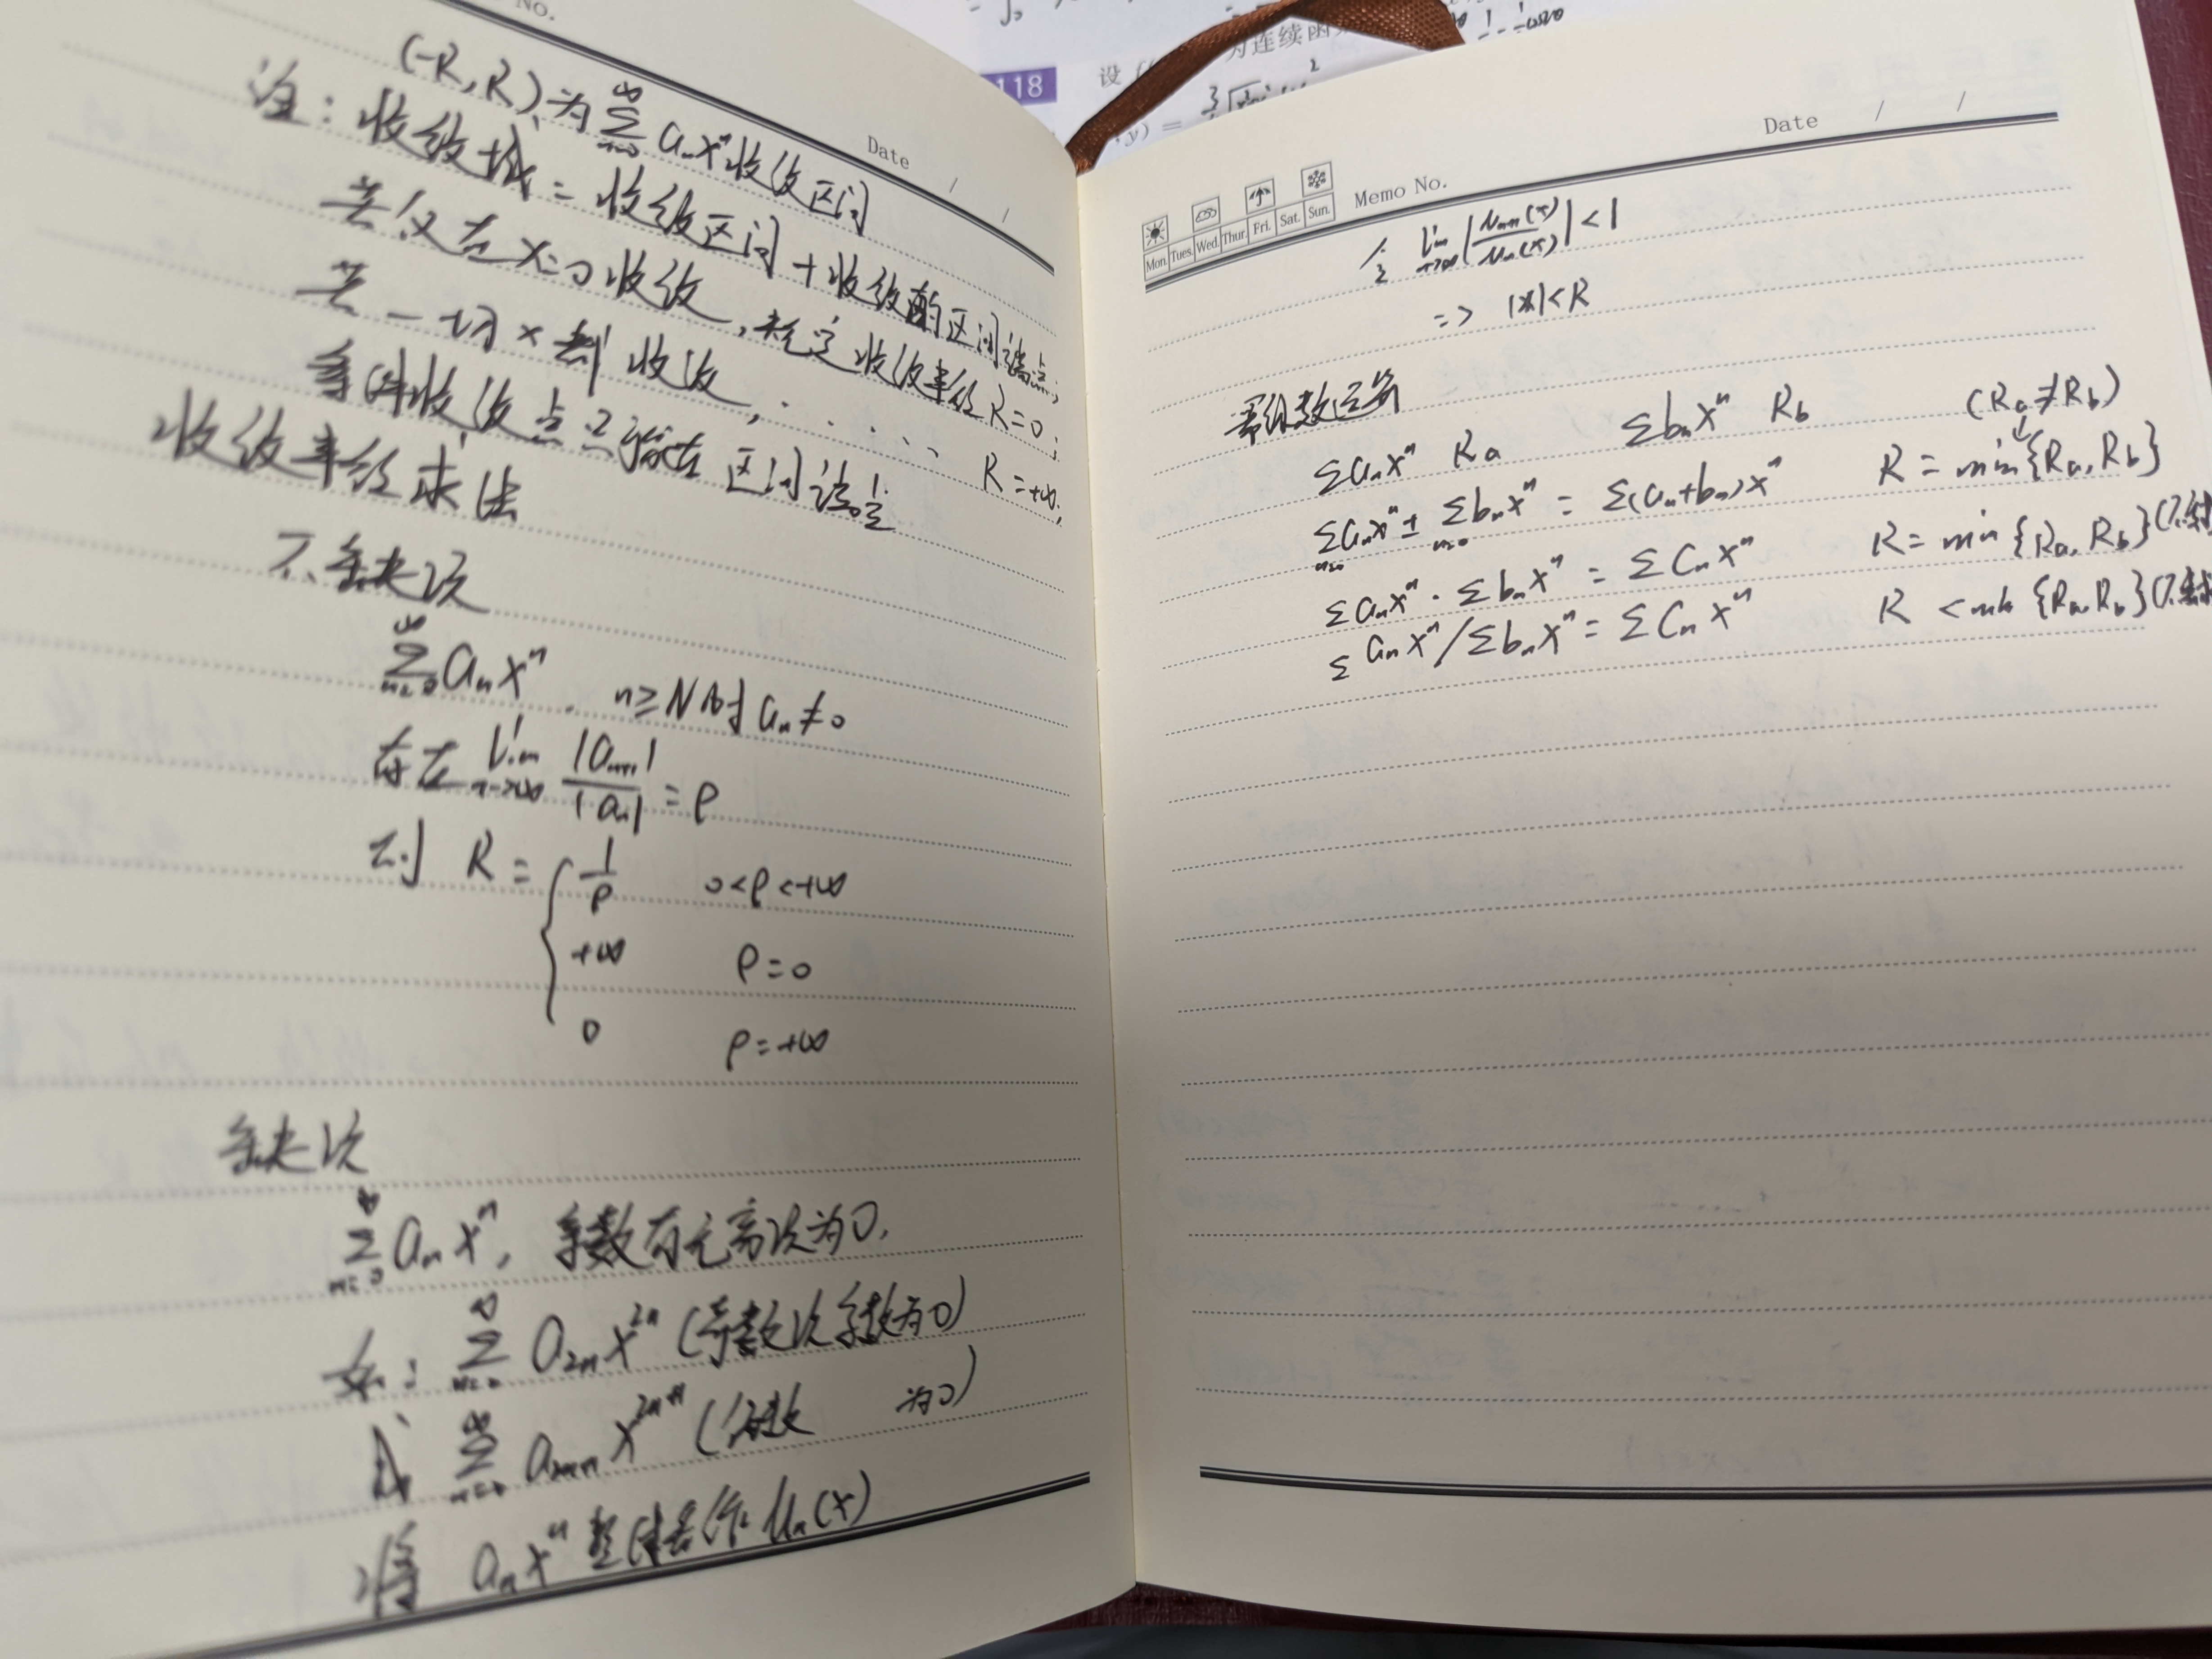 No.
Date / /
(-R, R) 为 ∑_{n=0}^{∞} aₙxⁿ 收敛区间
注: 收敛域 = 收敛区间 + 收敛的区间端点;
若仅在 x=0 收敛, 规定收敛半径 R=0;
若一切 x 都收敛, ······ R=+∞;
条件收敛点只能在区间端点
收敛半径求法
不缺次
∑_{n=0}^{∞} aₙxⁿ. n≥N时 aₙ≠0
存在 lim_{n→∞} |aₙ₊₁|/|aₙ| = ρ
则 R = { 1/ρ 0<ρ<+∞
+∞ ρ=0
0 ρ=+∞
缺次
∑_{n=0}^{∞} aₙxⁿ, 系数有无穷次为0.
如: ∑_{n=0}^{∞} a₂ₙx²ⁿ (奇数次系数为0)
或 ∑_{n=0}^{∞} a₂ₙ₊₁x²ⁿ⁺¹ (偶数 为0)
将 aₙxⁿ 整体看作 uₙ(x)
118 设
为连续函
Date / /
Memo No.
Mon. Tues. Wed. Thur. Fri. Sat. Sun.
令 lim_{n→∞} |uₙ₊₁(x)/uₙ(x)| < 1
=> |x|<R
幂级数运算
∑aₙxⁿ Rₐ ∑bₙxⁿ R_b (Rₐ≠R_b)
∑_{n=0} aₙxⁿ ± ∑_{n=0} bₙxⁿ = ∑(aₙ+bₙ)xⁿ R = min{Rₐ, R_b}
∑aₙxⁿ · ∑bₙxⁿ = ∑Cₙxⁿ R = min{Rₐ, R_b} (不
∑aₙxⁿ / ∑bₙxⁿ = ∑Cₙxⁿ R < min{Rₐ, R_b} (不